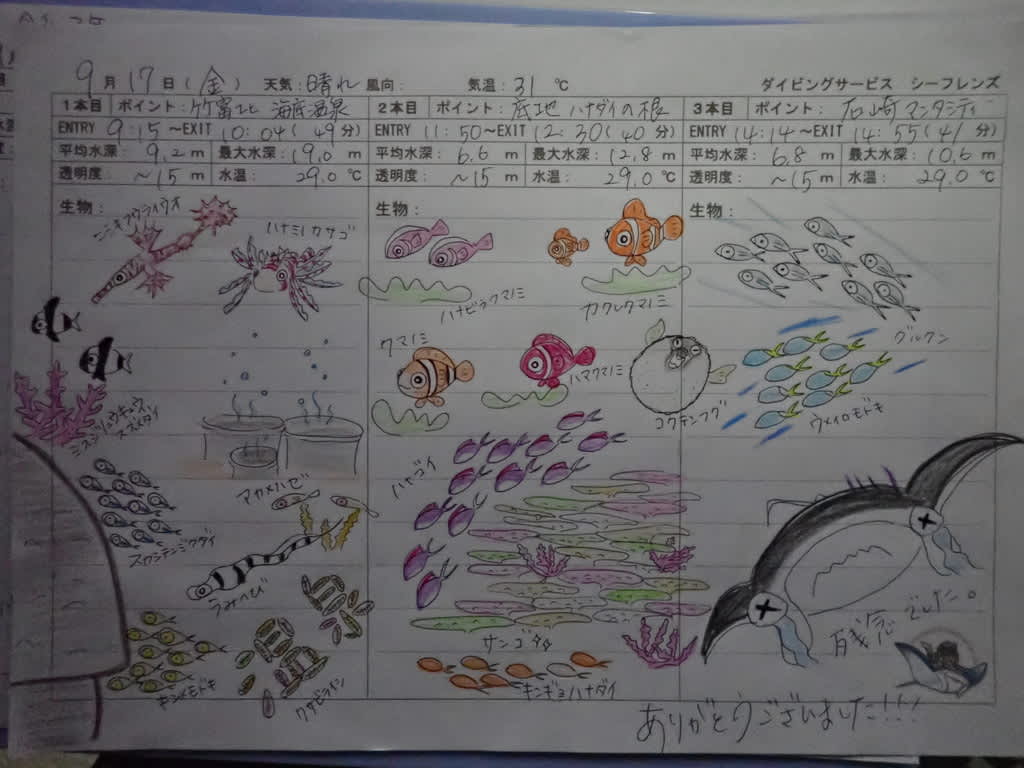 9月17日(金) 天気:晴れ 風向: 気温:31℃ ダイビングサービス シーフレンズ
1本目 ポイント:竹富エビ 海底温泉
ENTRY 9:15～EXIT 10:04(49分)
平均水深:9.2m 最大水深:19.0m
透明度:～15m 水温:29.0℃
生物:
ニシキフウライウオ
ハナミノカサゴ
ミスジリュウキュウ
スズメダイ
アカメハゼ
スカシテンジクダイ
うみへび
キンメモドキ
クサビライシ
2本目 ポイント:底地 ハナダイの根
ENTRY 11:50～EXIT 12:30(40分)
平均水深:6.6m 最大水深:12.8m
透明度:～15m 水温:29.0℃
生物:
ハナビラクマノミ
カクレクマノミ
クマノミ
ハマクマノミ
コクテンフグ
ハナゴイ
サンゴ
キンギョハナダイ
3本目 ポイント:石崎マンタシティ
ENTRY 14:14～EXIT 14:55(41分)
平均水深:6.8m 最大水深:10.6m
透明度:～15m 水温:29.0℃
生物:
グルクン
ウメイロモドキ
残念でした。
ありがとうございました!!!